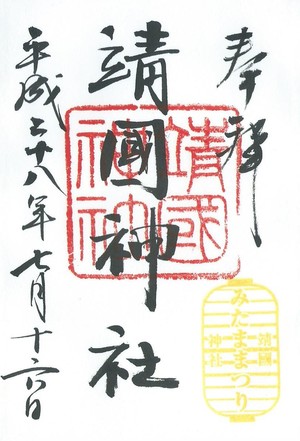 奉拝
靖國神社
平成二十八年七月十六日
靖國神社
みたままつり
靖國
神社